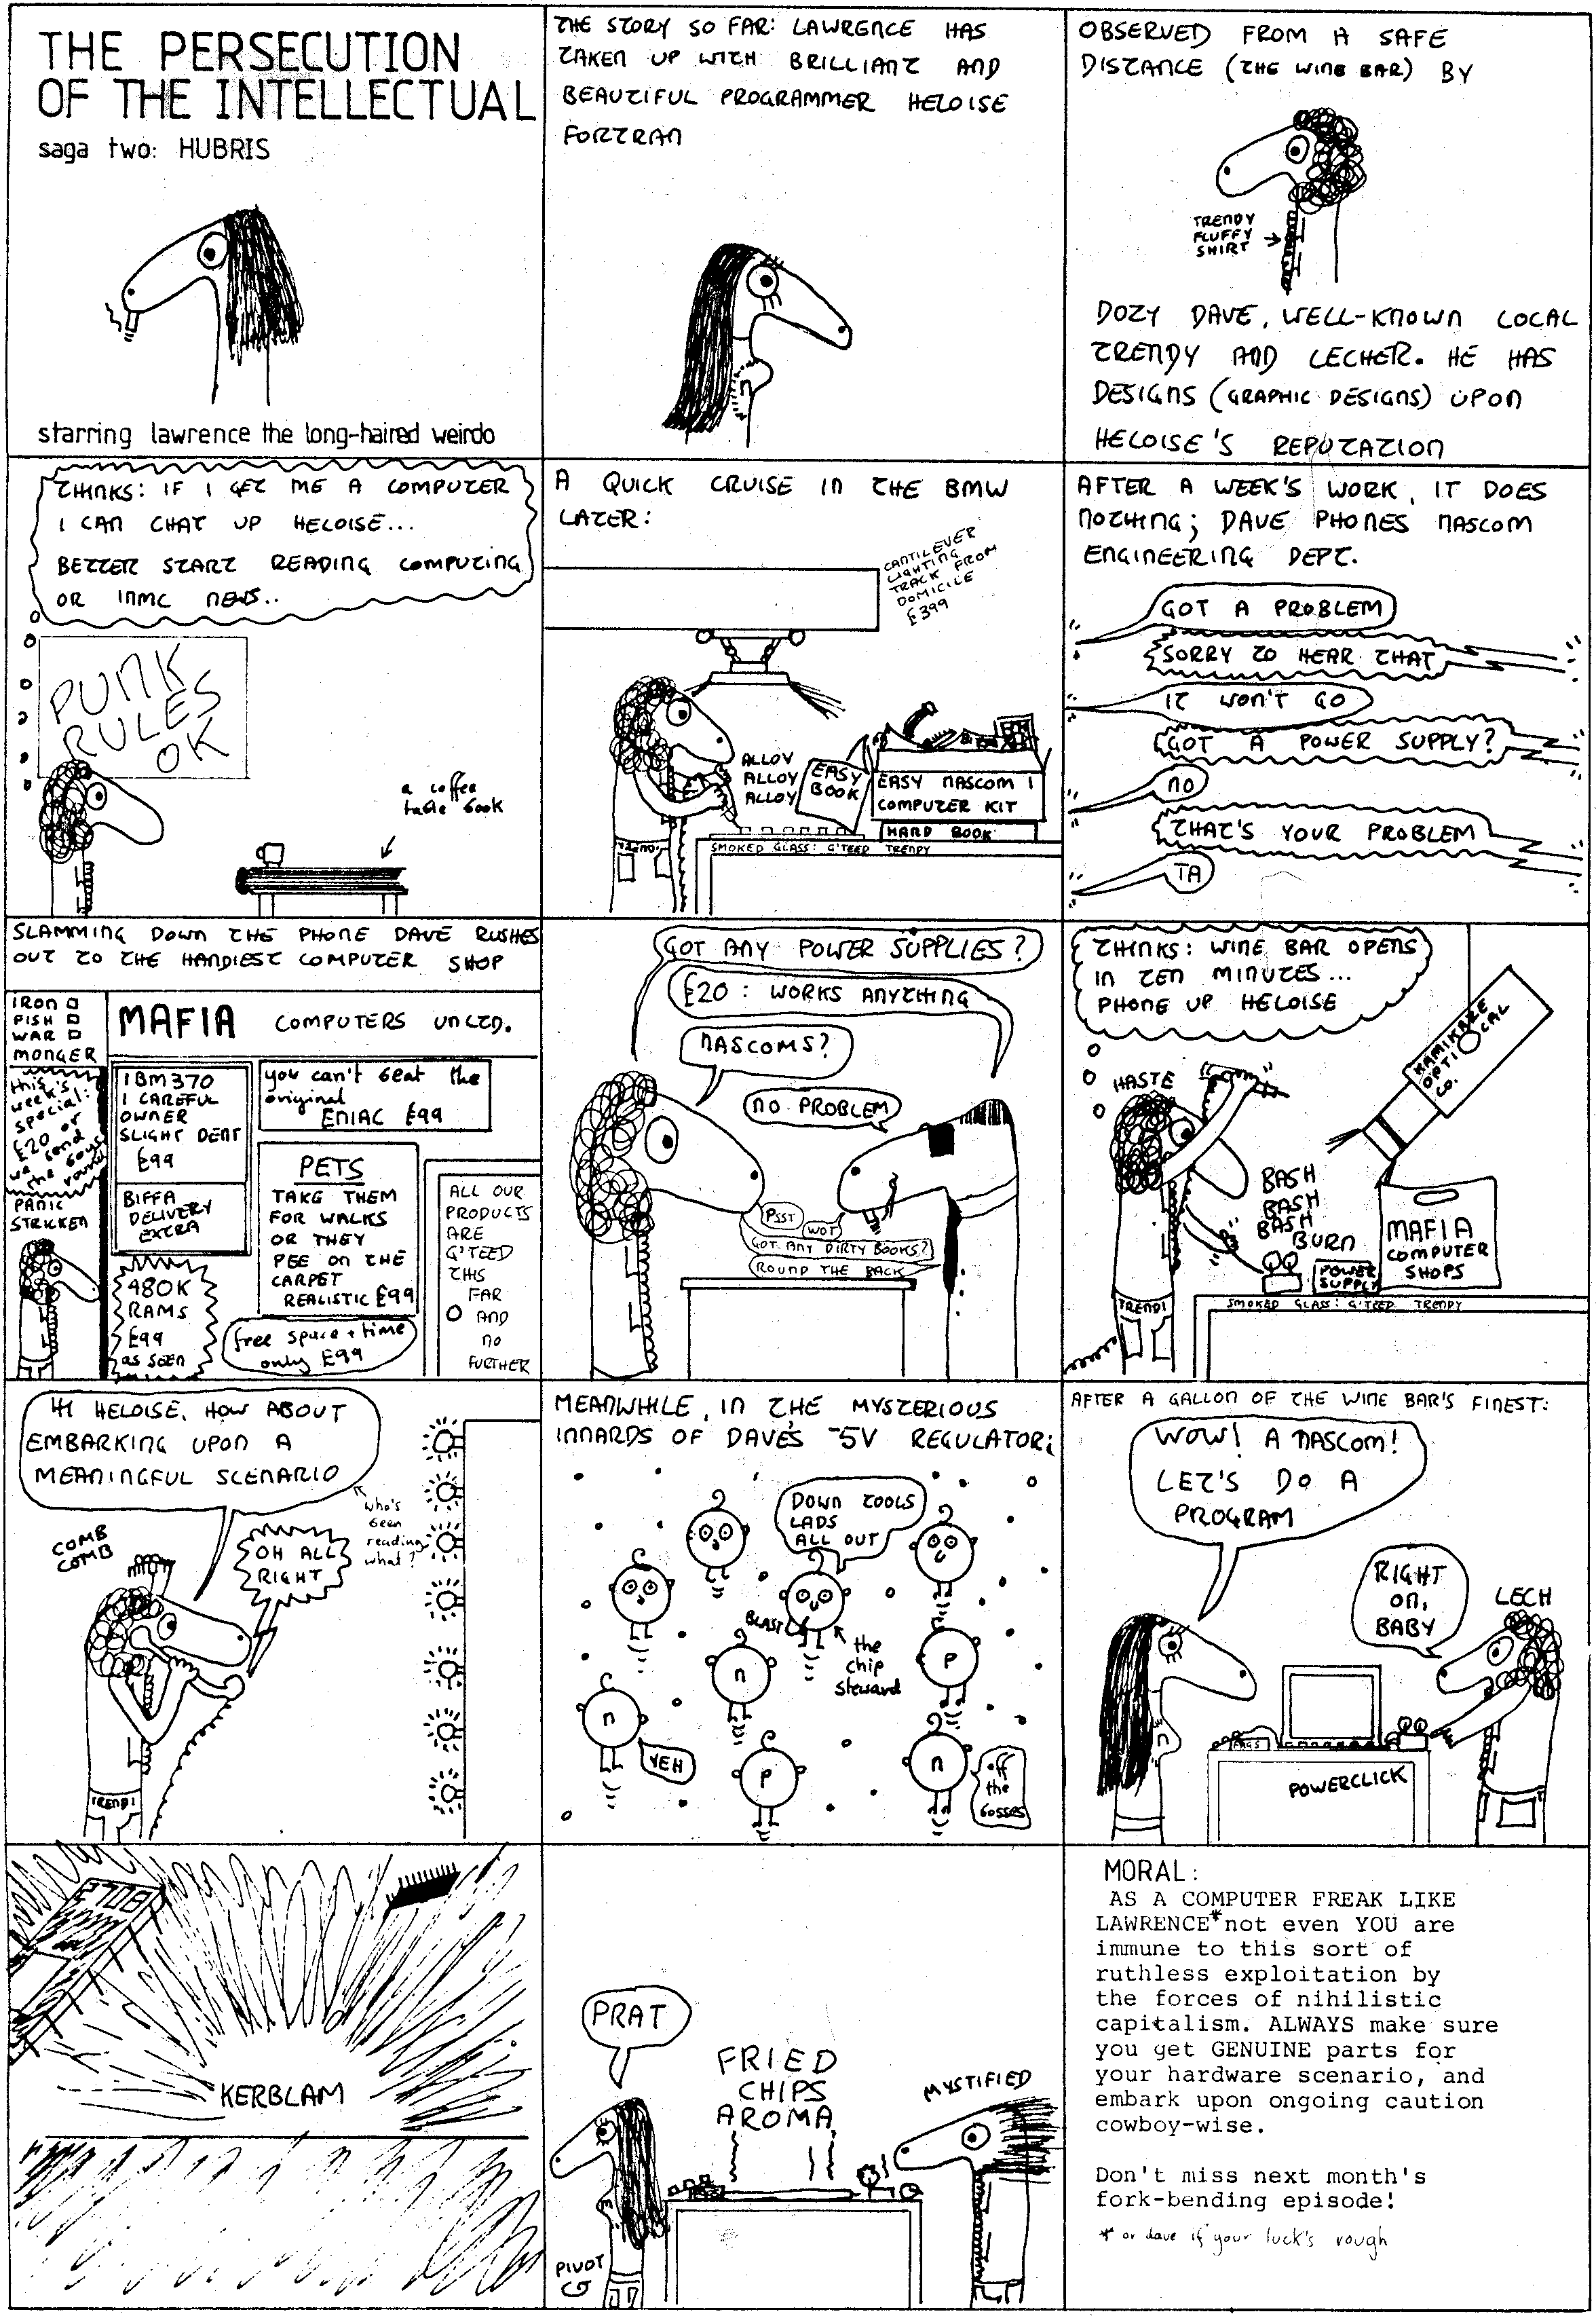 THE PERSECUTION
OF THE INTELLECTUAL
saga two: HUBRIS
starring lawrence the long-haired weirdo
THE STORY SO FAR: LAWRENCE HAS
TAKEN UP WITH BRILLIANT AND
BEAUTIFUL PROGRAMMER HELOISE
FORTRAN
OBSERVED FROM A SAFE
DISTANCE (THE WINE BAR) BY
TRENDY
FLUFFY
SHIRT
DOZY DAVE, WELL-KNOWN LOCAL
TRENDY AND LECHER. HE HAS
DESIGNS (GRAPHIC DESIGNS) UPON
HELOISE'S REPUTATION
THINKS: IF I GET ME A COMPUTER
I CAN CHAT UP HELOISE...
BETTER START READING COMPUTING
OR INMC NEWS..
PUNK
RULES
OK
a coffee
table book
A QUICK CRUISE IN THE BMW
LATER:
CANTILEVER
LIGHTING
TRACK FROM
DOMICILE
£399
ALLOY
ALLOY
ALLOY
EASY
BOOK
EASY NASCOM 1
COMPUTER KIT
HARD BOOK
SMOKED GLASS: G'TEED TRENDY
TRENDI
AFTER A WEEK'S WORK, IT DOES
NOTHING; DAVE PHONES NASCOM
ENGINEERING DEPT.
GOT A PROBLEM
SORRY TO HEAR THAT
IT WON'T GO
GOT A POWER SUPPLY?
NO
THAT'S YOUR PROBLEM
TA
SLAMMING DOWN THE PHONE DAVE RUSHES
OUT TO THE HANDIEST COMPUTER SHOP
IRON
FISH
WAR
MONGER
this
week's
special:
£20 or
we send
the boys
round
PANIC
STRICKEN
MAFIA COMPUTERS UNLTD.
IBM370
1 CAREFUL
OWNER
SLIGHT DENT
£99
BIFFA
DELIVERY
EXTRA
480K
RAMS
£99
as SEEN
you can't beat the
original
ENIAC £99
PETS
TAKE THEM
FOR WALKS
OR THEY
PEE ON THE
CARPET
REALISTIC £99
free space + time
only £99
ALL OUR
PRODUCTS
ARE
G'TEED
THIS
FAR
AND
NO
FURTHER
GOT ANY POWER SUPPLIES?
£20: WORKS ANYTHING
NASCOMS?
NO PROBLEM
PSST
WOT
GOT ANY DIRTY BOOKS?
ROUND THE BACK
THINKS: WINE BAR OPENS
IN TEN MINUTES...
PHONE UP HELOISE
KAMIKAZE
OPTICAL
CO.
HASTE
BASH
BASH
BASH
BURN
POWER
SUPPLY
MAFIA
COMPUTER
SHOPS
TRENDI
SMOKED GLASS: G'TEED TRENDY
HI HELOISE, HOW ABOUT
EMBARKING UPON A
MEANINGFUL SCENARIO
who's
been
reading
what?
COMB
COMB
OH ALL
RIGHT
TRENDI
MEANWHILE, IN THE MYSTERIOUS
INNARDS OF DAVE'S -5V REGULATOR:
DOWN TOOLS
LADS
ALL OUT
BLAST
the
chip
steward
n
p
n
YEH
p
n
off
the
bosses
AFTER A GALLON OF THE WINE BAR'S FINEST:
WOW! A NASCOM!
LET'S DO A
PROGRAM
RIGHT
ON,
BABY
LECH
FAGS
POWERCLICK
2708
KERBLAM
PRAT
FRIED
CHIPS
AROMA
MYSTIFIED
PIVOT
MORAL:
AS A COMPUTER FREAK LIKE
LAWRENCE*not even YOU are
immune to this sort of
ruthless exploitation by
the forces of nihilistic
capitalism. ALWAYS make sure
you get GENUINE parts for
your hardware scenario, and
embark upon ongoing caution
cowboy-wise.
Don't miss next month's
fork-bending episode!
* or dave if your luck's rough